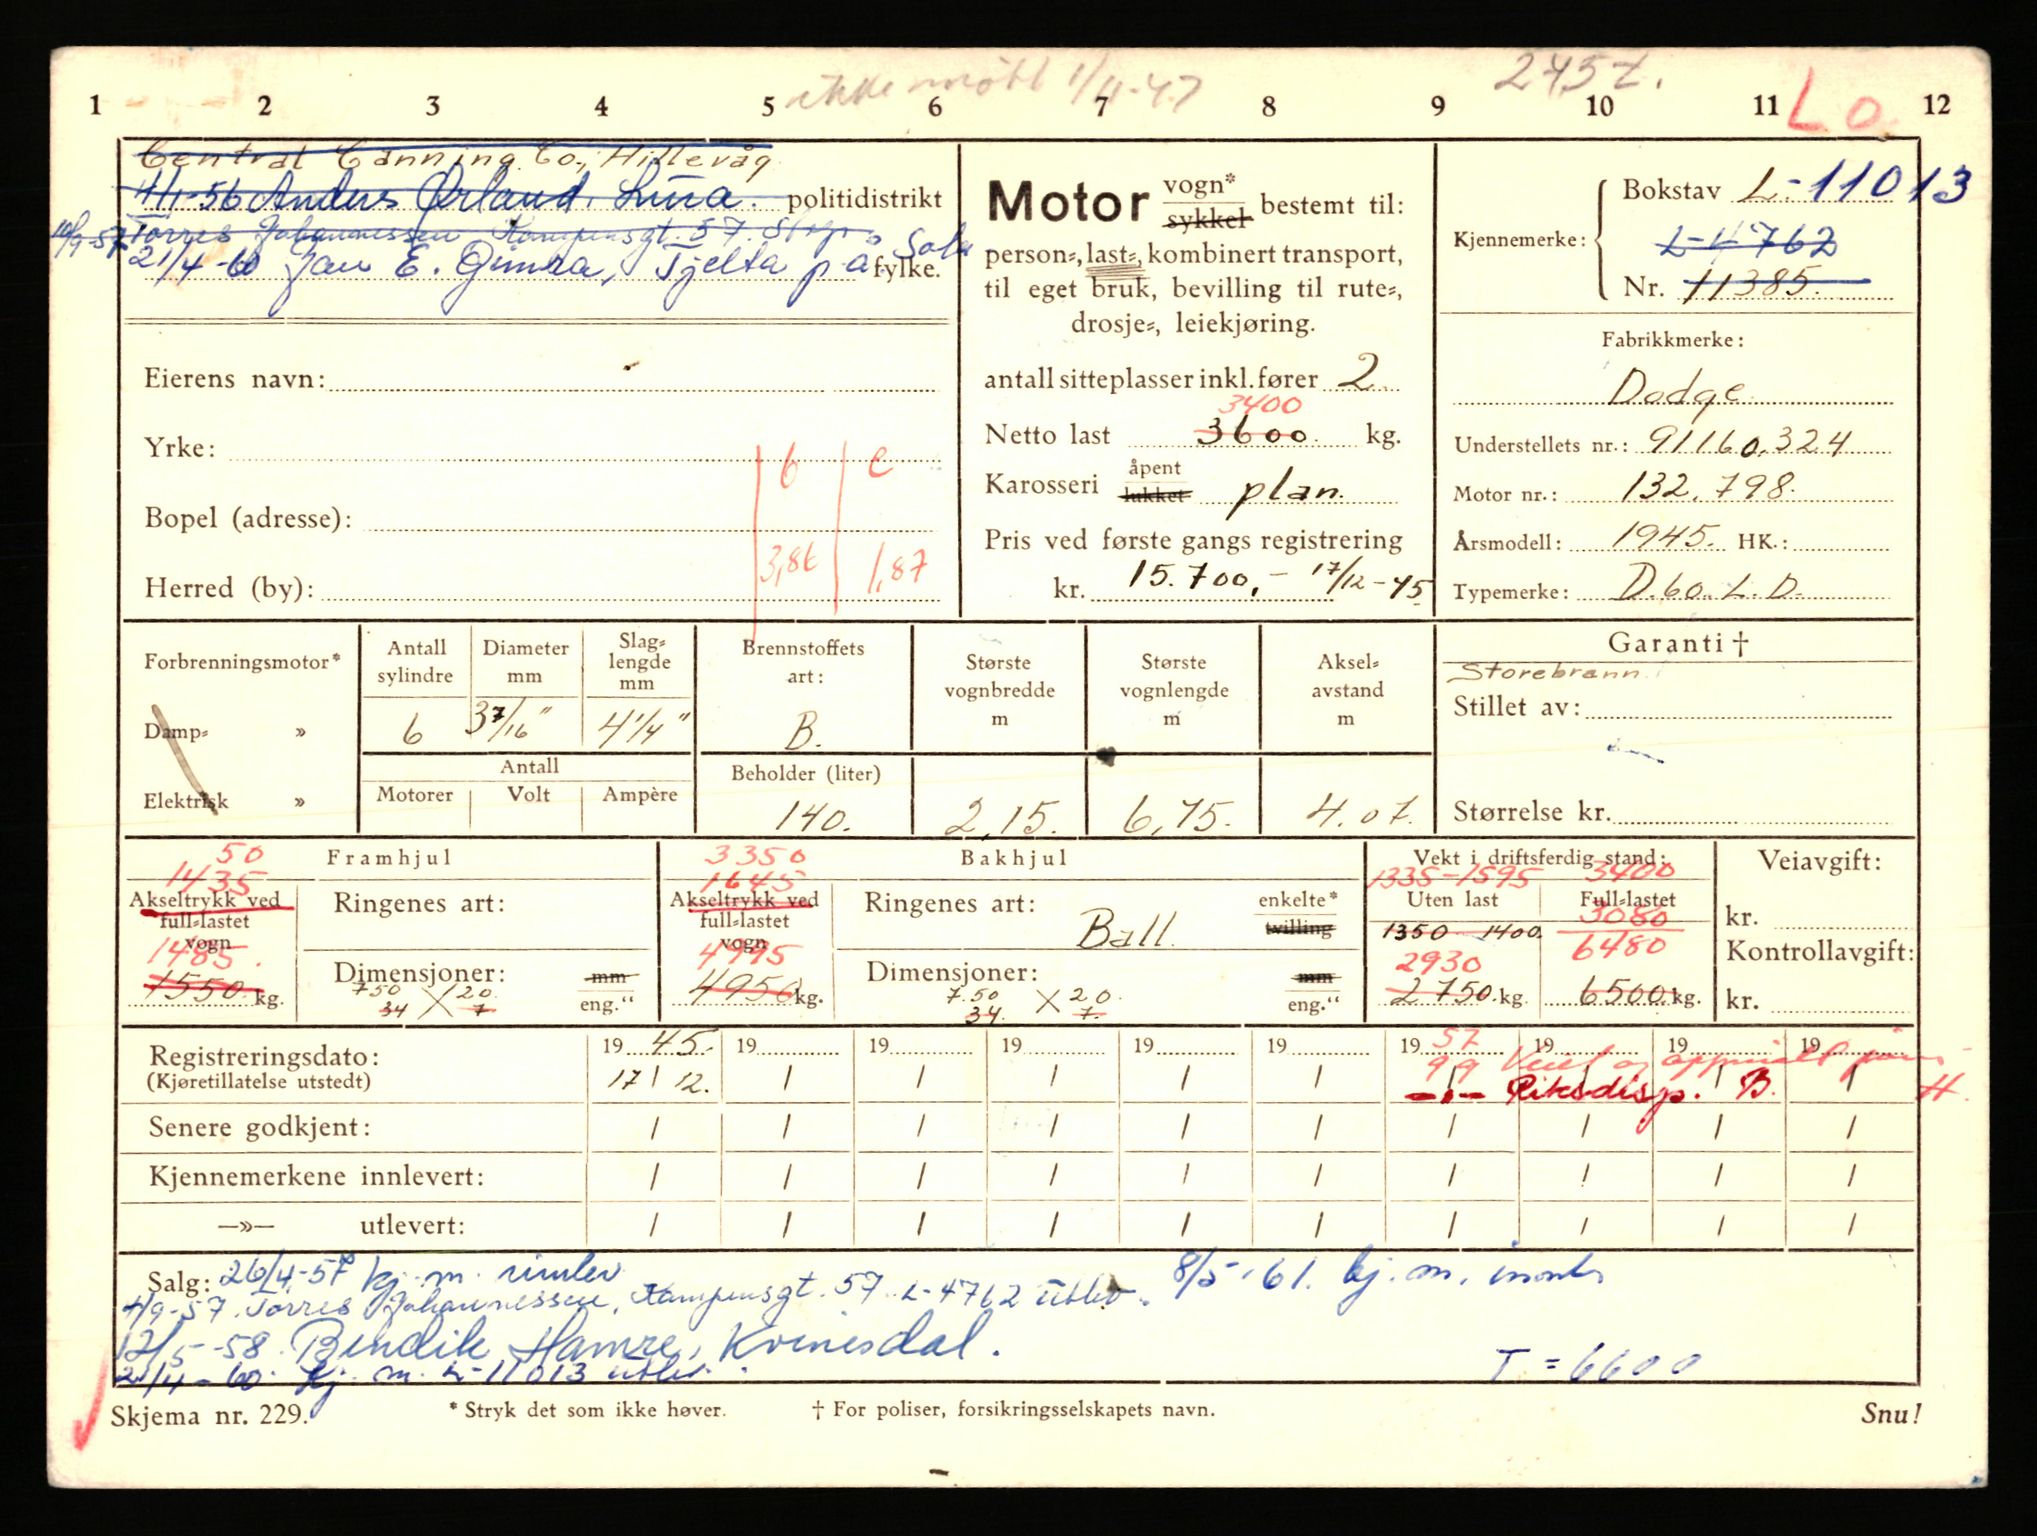 ikke møtt 1/4-47
2432.
1 2 3 4 5 6 7 8 9 10 11 12
Lo
Central Canning Co., Hillevåg
4/1-56 Anders Ørland, Lura. politidistrikt
10/9-57 Torres Johannessen Kampensgt. 57.
21/4-60 Jan E. Gimra, Tjelta p.å. Sola
fylke.
Eierens navn:
Yrke:
Bopel (adresse):
Herred (by):
b c
3,86 1,87
Motor vogn* sykkel bestemt til:
person-, last-, kombinert transport,
til eget bruk, bevilling til rute-,
drosje-, leiekjøring.
antall sitteplasser inkl. fører 2
3400
Netto last 3600 kg.
Karosseri åpent lukket plan.
Pris ved første gangs registrering
kr. 15.700,- 17/12-45
Kjennemerke: Bokstav L-11013
L-4762
Nr. 11385
Fabrikkmerke:
Dodge
Understellets nr.: 91160.324
Motor nr.: 132.798.
Årsmodell: 1945. HK.:
Typemerke: D.60.L.D.
Forbrenningsmotor*
Damp- »
Elektrisk »
Antall sylindre 6
Diameter mm 3 7/16"
Slaglengde mm 4 1/4"
Antall
Motorer Volt Ampère
Brennstoffets art: B.
Beholder (liter) 140.
Største vognbredde m 2,15.
Største vognlengde m 6,75.
Aksel-avstand m 4.07.
Garanti †
Storebrann.
Stillet av:
Størrelse kr.
Framhjul
50
1435
Akseltrykk ved full-lastet vogn
1485.
1550 kg.
Ringenes art:
Dimensjoner: mm eng."
7.50 X 20.
34 7
Bakhjul
3350
1645
Akseltrykk ved full-lastet vogn
4995
4950 kg.
Ringenes art: Ball enkelte* tvilling
Dimensjoner: mm eng."
7.50 X 20.
34. 7.
Vekt i driftsferdig stand:
1335-1595 3400
Uten last Full-lastet
3080
1350 1400.
6480
2930
2750 kg. 6500 kg.
Veiavgift:
kr.
Kontrollavgift:
kr.
Registreringsdato: 19 45. 19 19 19 19 19 19 57 19 19 19
(Kjøretillatelse utstedt) 17/12. 9/9 Veiet og
-"- Riksdisp. B. H.
Senere godkjent:
Kjennemerkene innlevert:
—»— utlevert:
Salg: 26/4-57 kj. m. innlev
8/5-61. kj. m.
4/9-57. Torres Johannessen, Kampensgt. 57. L-4762 utlev.
12/5-58. Bendik Hamre, Kvinesdal.
21/4-60. kj. m. L-11013 utlev.
T = 6600
Skjema nr. 229.
* Stryk det som ikke høver.
† For poliser, forsikringsselskapets navn.
Snu!